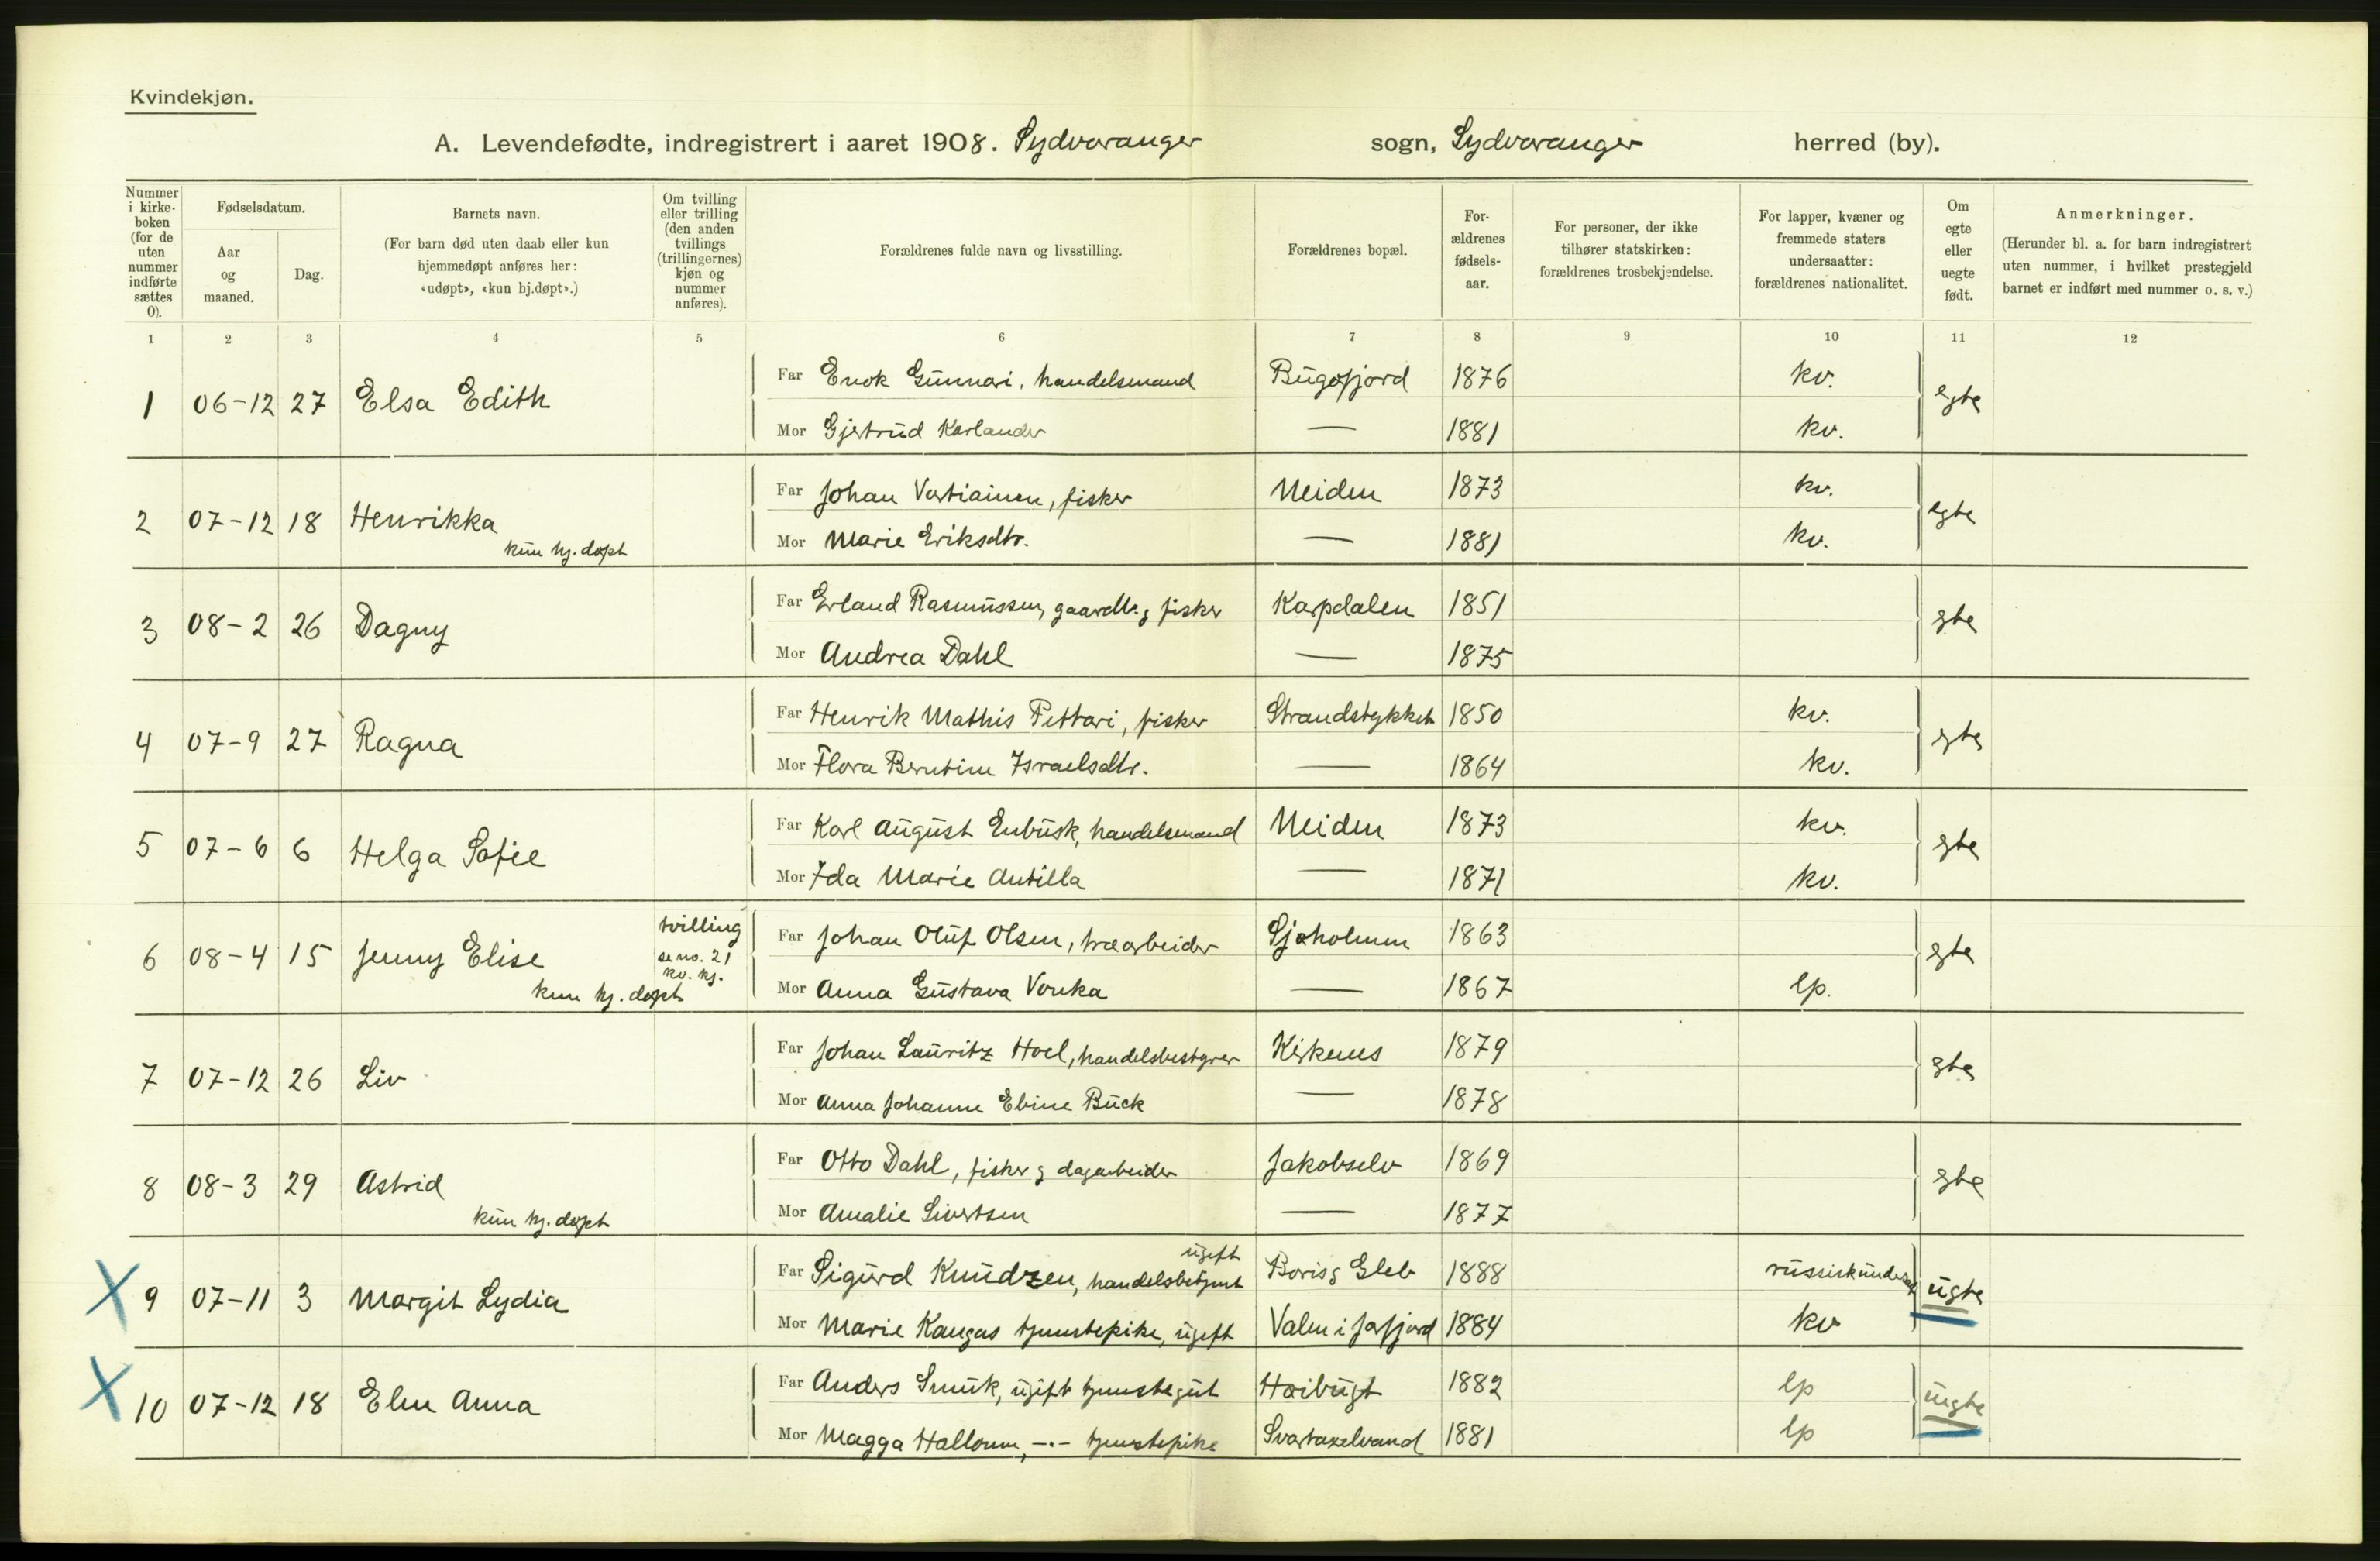 Kvindekjøn.
A. Levendefødte, indregistrert i aaret 1908. Sydvaranger sogn, Sydvaranger herred (by).
Nummer i kirke-boken (for de uten nummer indførte sættes 0).
Fødselsdatum.
Aar og maaned.
Dag.
Barnets navn.
(For barn død uten daab eller kun hjemmedøpt anføres her: «udøpt», «kun hj.døpt».)
Om tvilling eller trilling (den anden tvillings (trillingernes) kjøn og nummer anføres).
Forældrenes fulde navn og livsstilling.
Forældrenes bopæl.
For-ældrenes fødsels-aar.
For personer, der ikke tilhører statskirken: forældrenes trosbekjendelse.
For lapper, kvæner og fremmede staters undersaatter: forældrenes nationalitet.
Om egte eller uegte født.
Anmerkninger.
(Herunder bl. a. for barn indregistrert uten nummer, i hvilket prestegjeld barnet er indført med nummer o. s. v.)
1 2 3 4 5 6 7 8 9 10 11 12
Far Enok Gunnari, handelsmand Bugøfjord 1876 kv.
1 06-12 27 Elsa Edith egte
Mor Gjertrud Karlander — 1881 kv.
Far Johan Vartiainen, fisker Neiden 1873 kv.
2 07-12 18 Henrikka kun hj. døpt egte
Mor Marie Eriksdtr. — 1881 kv.
Far Erland Rasmussen, gaardbr. g fisker Karpdalen 1851
3 08-2 26 Dagny gte
Mor Andrea Dahl — 1875
Far Henrik Mathis Pettari, fisker Strandstykket 1850 kv.
4 07-9 27 Ragna gte
Mor Flora Berntine Israelsdtr. — 1864 kv.
Far Karl August Enbusk, handelsmand Neiden 1873 kv.
5 07-6 6 Helga Sofie gte
Mor Ida Marie Antilla — 1871 kv.
Far Johan Oluf Olsen, træarbeider Sjøholmen 1863
6 08-4 15 Jenny Elise kun hj. døpt tvilling se no. 21 kv. kj. gte
Mor Anna Gustava Vonka — 1867 lp.
Far Johan Lauritz Hoel, handelsbestyrer Kirkenes 1879
7 07-12 26 Liv gte
Mor Anna Johanne Ebine Buck — 1878
Far Otto Dahl, fisker g dagarbeider Jakobselv 1869
8 08-3 29 Astrid kun hj. døpt gte
Mor Amalie Sivertsen — 1877
Far Sigurd Knudzen, handelsbetjent ugift Boris g Gleb 1888 russisk undersaat
X 9 07-11 3 Margit Lydia ugte
Mor Marie Kangas tjenestepike, ugift Valen i Jarfjord 1884 kv
Far Anders Smuk, ugift tjenestegut Høibugt 1882 lp
X 10 07-12 18 Elen Anna uegte
Mor Magga Hallonen, -.- tjenestepike Svartaxelvand 1881 lp